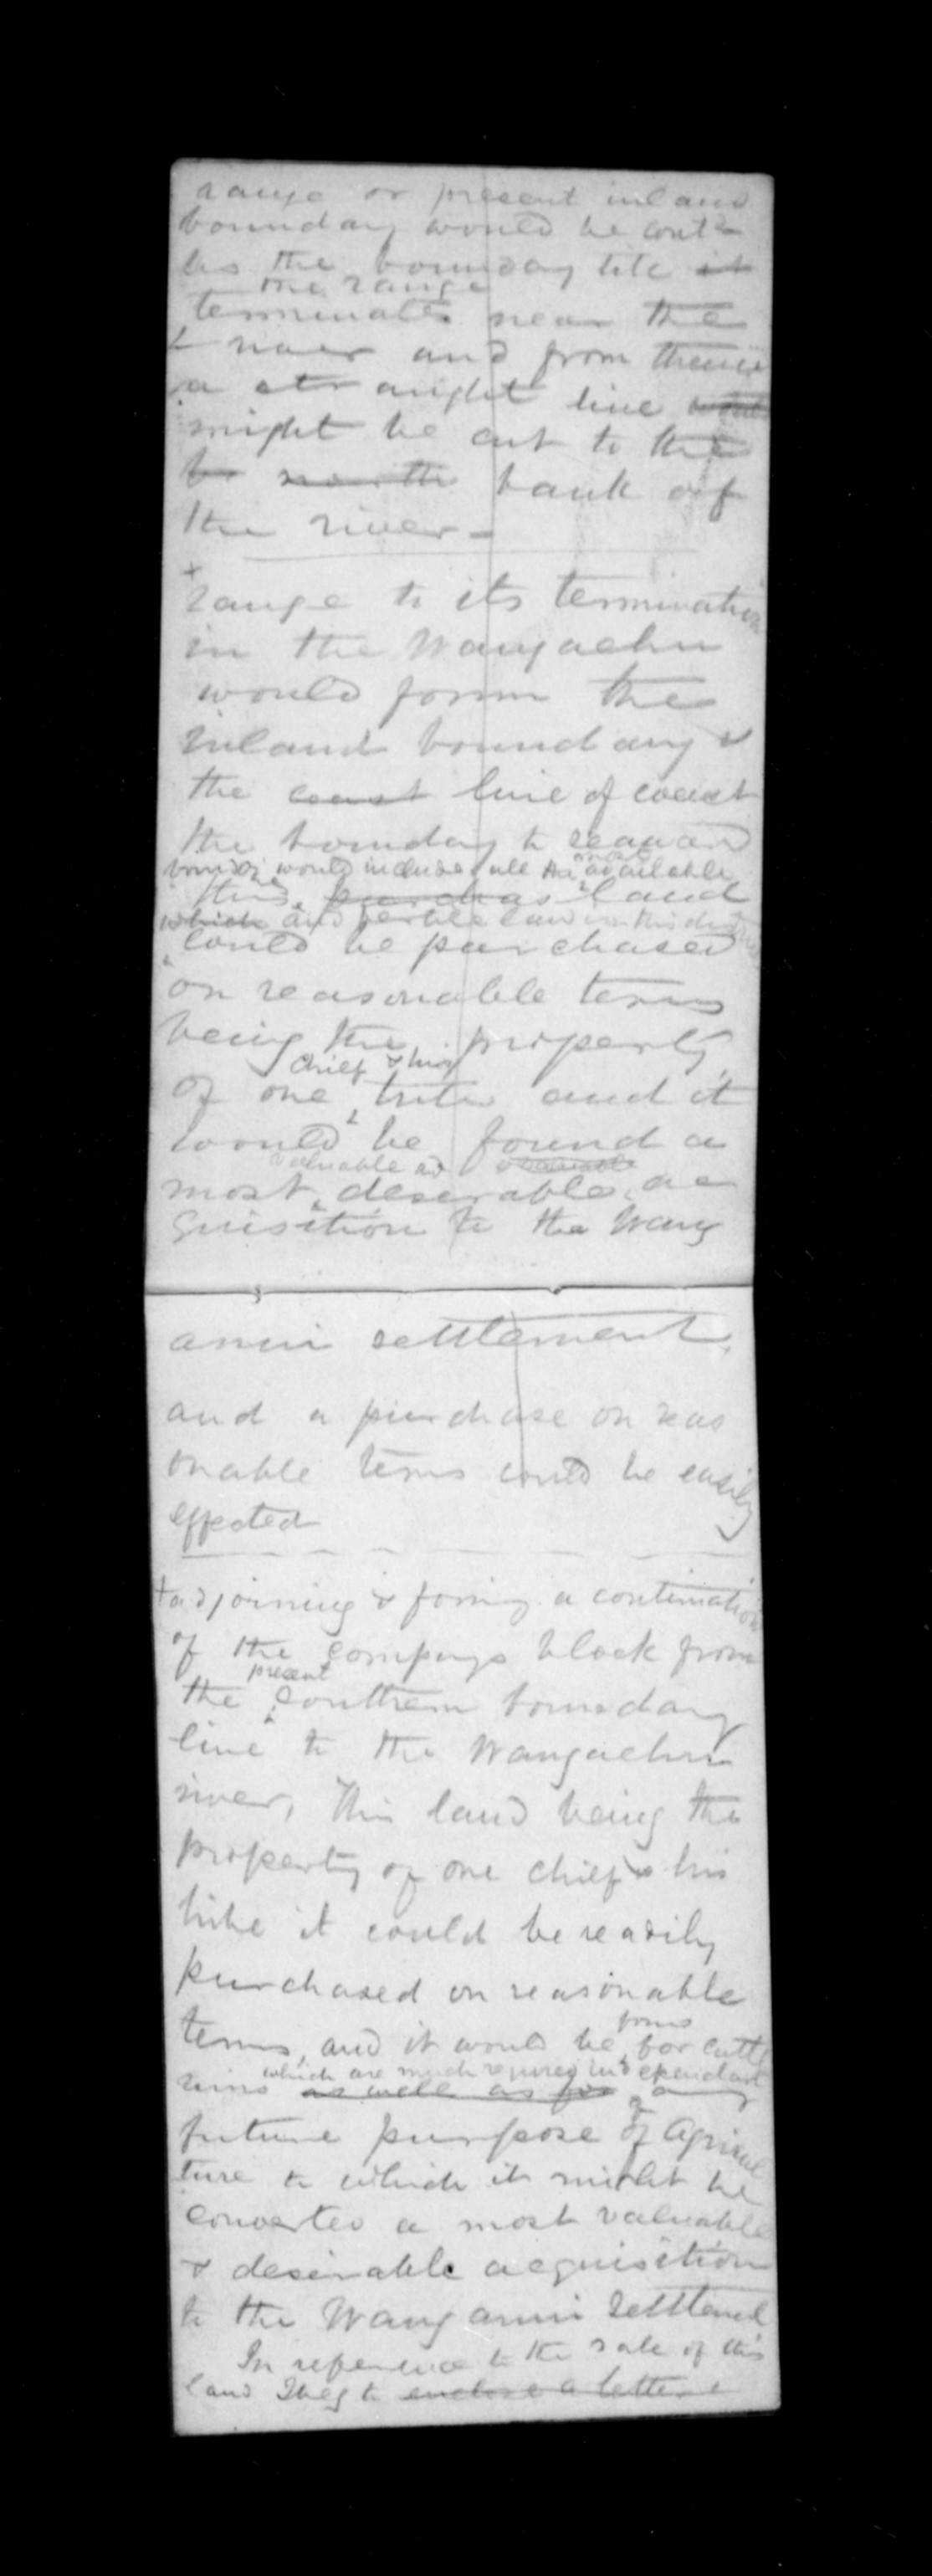 range or present inland
boundary would be contd
as the boundary till it
the range
terminates near the
river and from thence
a straight line
might be cut to the
north bank of
the river -
+
range to its termination
in the Wangaehu
would form the
inland boundary &
the coast line of coast
the boundary to seaward
would include all the available
this purchas land
which and fertile land in this district
could be purchased
on reasonable terms
being the property
chief & his
of one tribe and it
would be found a
valuable and valuable
most desirable ac
quisition to the Wang
anui settlement.
and a purchase on reas
onable terms could be easily
effected
+ adjoining & forming a continuation
of the Companys block from
present
the southern boundary
line to the Wangaehu
river, This land being the
property of one chief & his
tribe it could be readily
purchased on reasonable
terms, and it would be for cattle
which are much required independant
runs as well as for any
future purpose of Agricul
ture to which it might be
converted a most valuable
& desirable acquisition
to the Wanganui Settlement
In reference to the sale of this
land I beg to enclose a letter